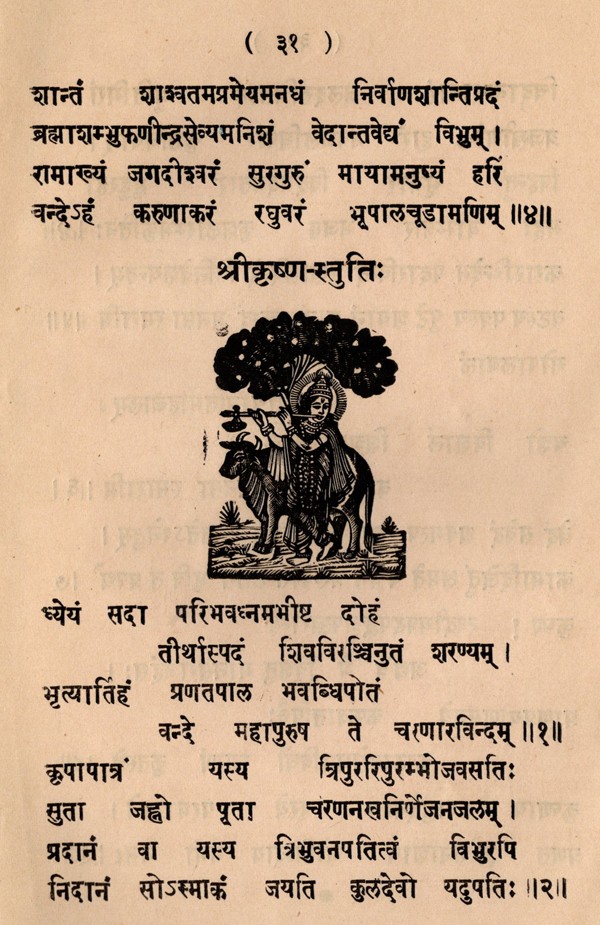 ( ३१ )
शान्तं शाश्वतमप्रमेयमनघं निर्वाणशान्तिप्रदं
ब्रह्माशम्भुफणीन्द्रसेव्यमनिशं वेदान्तवेद्यं विभुम् ।
रामाख्यं जगदीश्वरं सुरगुरुं मायामनुष्यं हरिं
वन्देऽहं करुणाकरं रघुवरं भूपालचूडामणिम् ॥४॥
श्रीकृष्ण-स्तुतिः
ध्येयं सदा परिभवघ्नमभीष्ट दोहं
तीर्थास्पदं शिवविरञ्चिनुतं शरण्यम् ।
भृत्यार्तिहं प्रणतपाल भवब्धिपोतं
वन्दे महापुरुष ते चरणारविन्दम् ॥१॥
कृपापात्रं यस्य त्रिपुररिपुरम्भोजवसतिः
सुता जह्नो पूता चरणनखनिर्णेजनजलम् ।
प्रदानं वा यस्य त्रिभुवनपतित्वं विभुरपि
निदानं सोऽस्माकं जयति कुलदेवो यदुपतिः ॥२॥